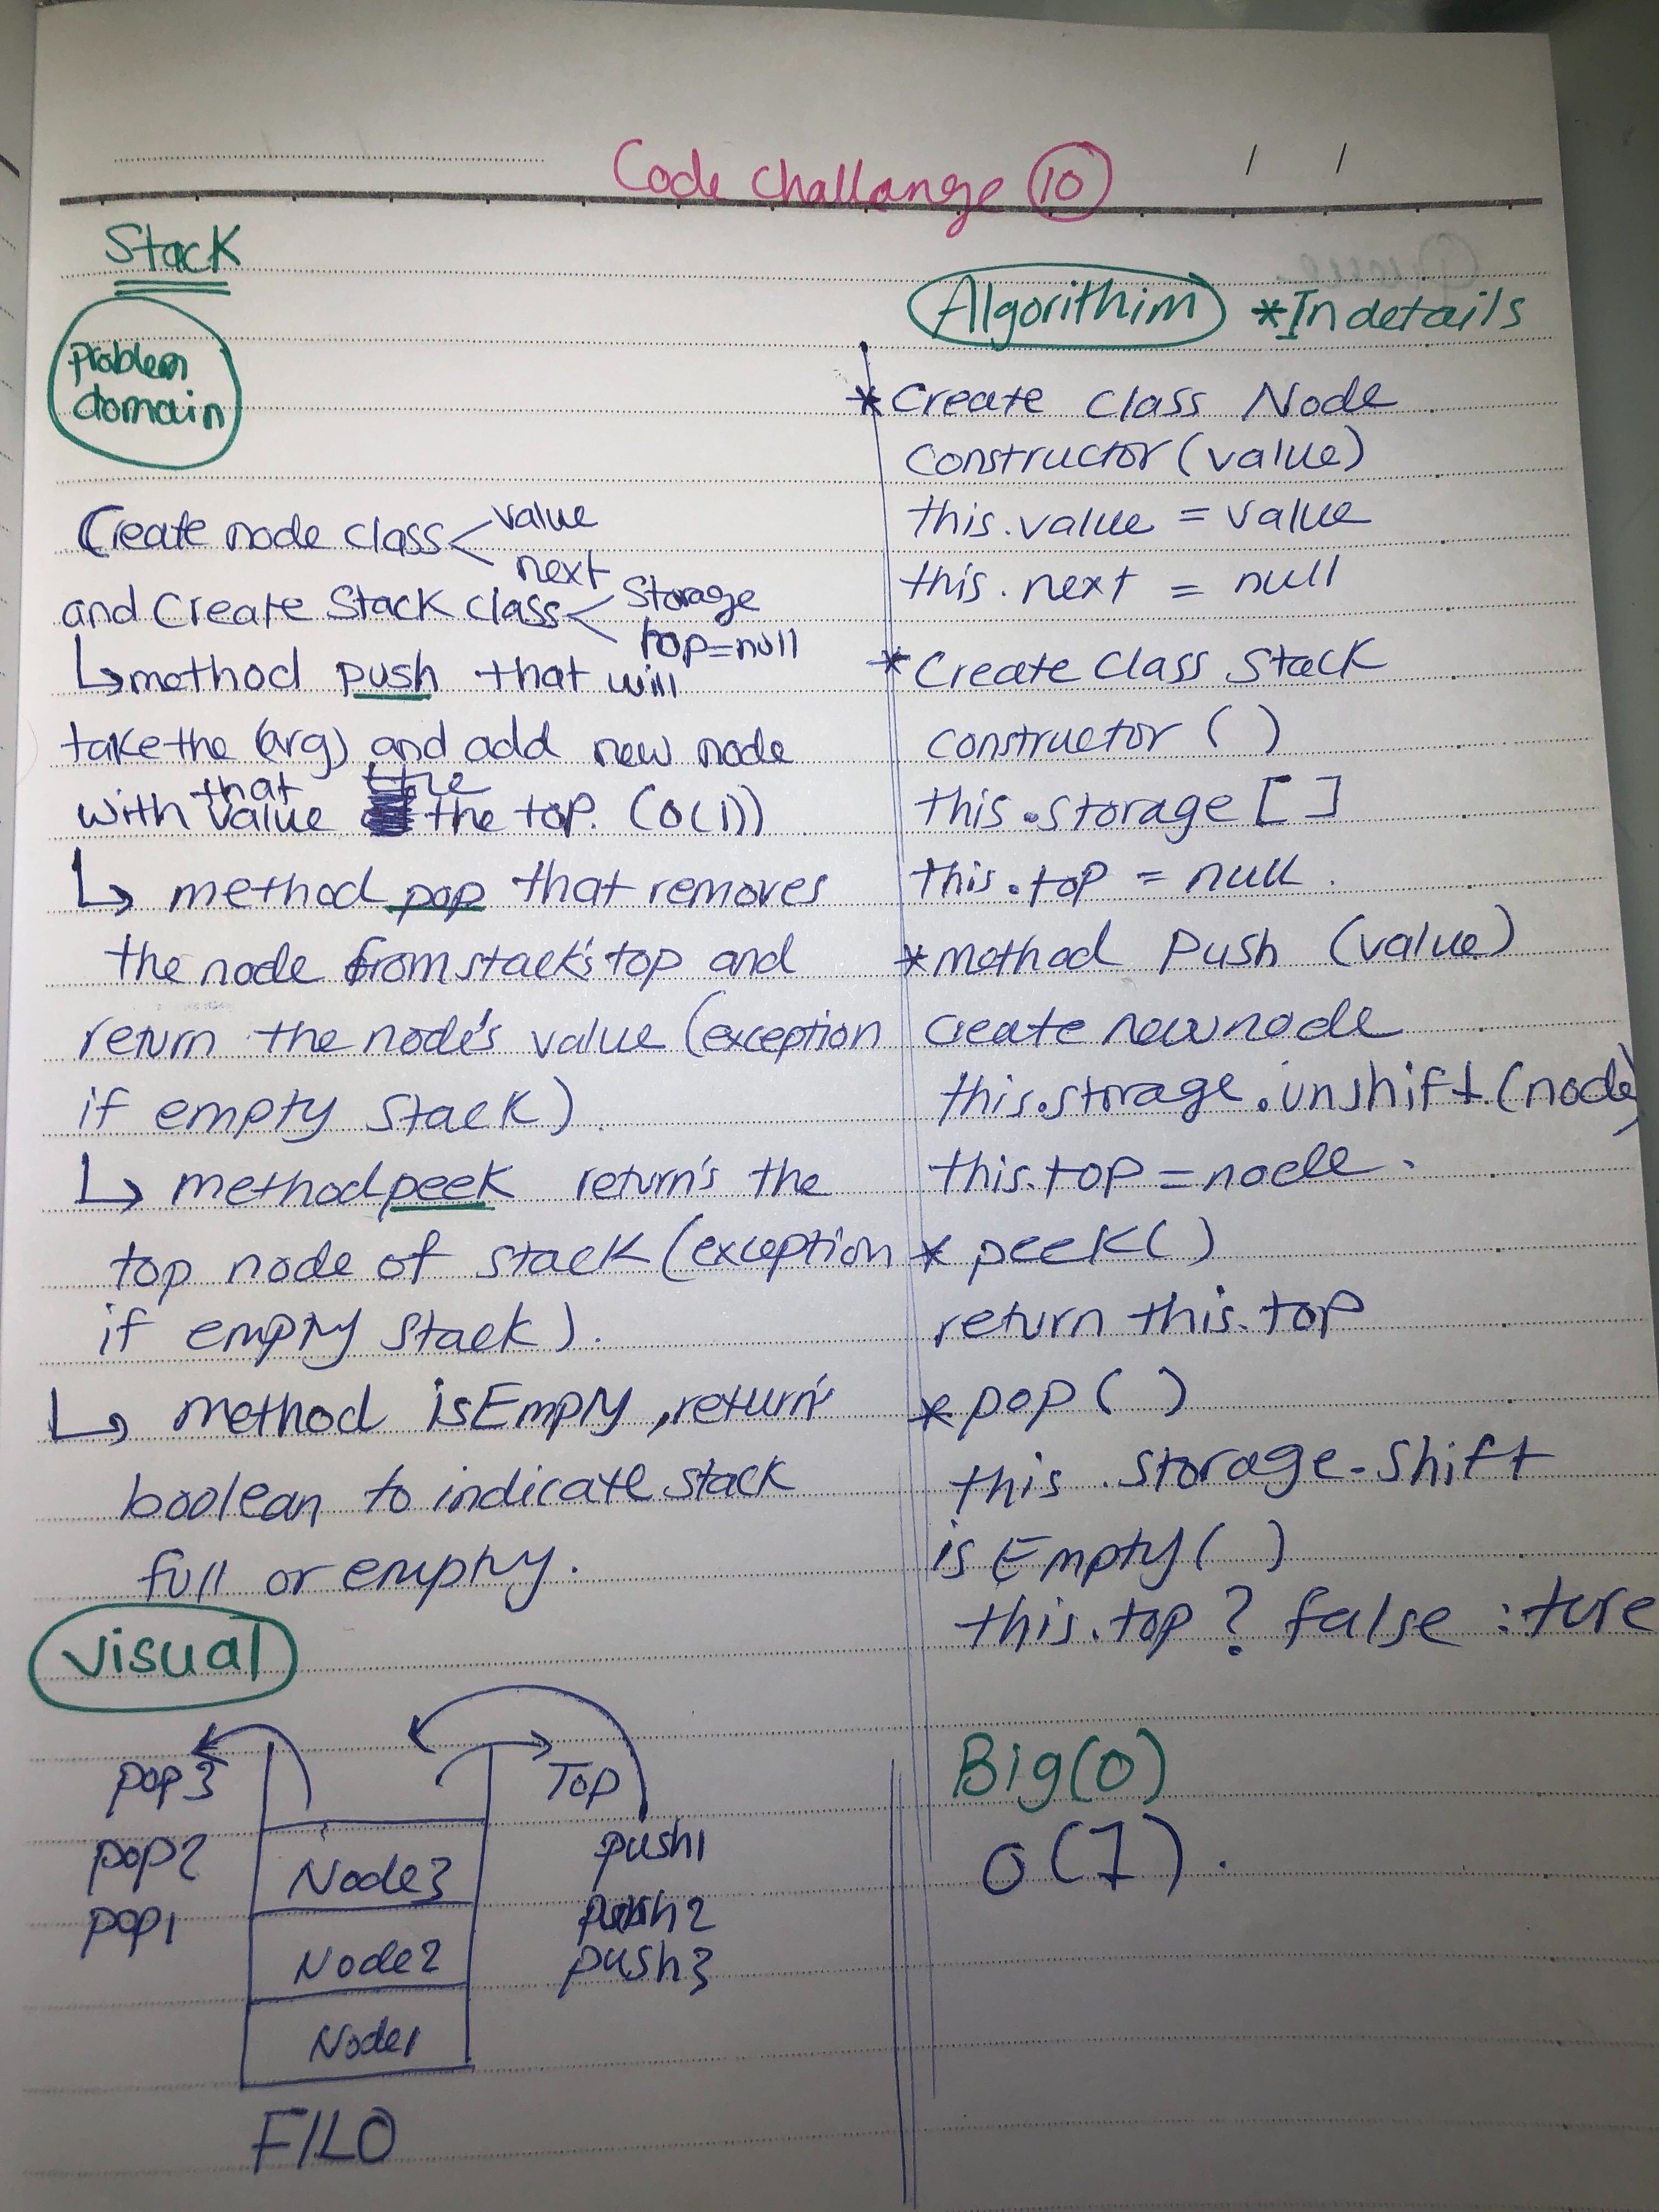 Code challange 10
Stack
problem
domain
Create node class < value
next
and Create Stack class < Storage
top=null
↳ method push that will
take the (arg) and add new node
with that value the the top. (O(1))
↳ method pop that removes
the node from stack's top and
return the node's value (exception
if empty stack).
↳ method peek return's the
top node of stack (exception
if empty stack).
↳ method isEmpty, return's
boolean to indicate stack
full or empty.
Visual
pop3
pop2
pop1
Top
push1
push2
push3
Node3
Node2
Node1
FILO
Algorithim *In details
* Create class Node
constructor (value)
this.value = value
this.next = null
* Create class Stack
constructor ( )
this.storage [ ]
this.top = null.
* method Push (value)
create new node
this.storage.unshift.(node)
this.top = node.
* peek( )
return this.top
* pop ( )
this.storage.shift
isEmpty( )
this.top ? false : ture
Big(O)
O(1).